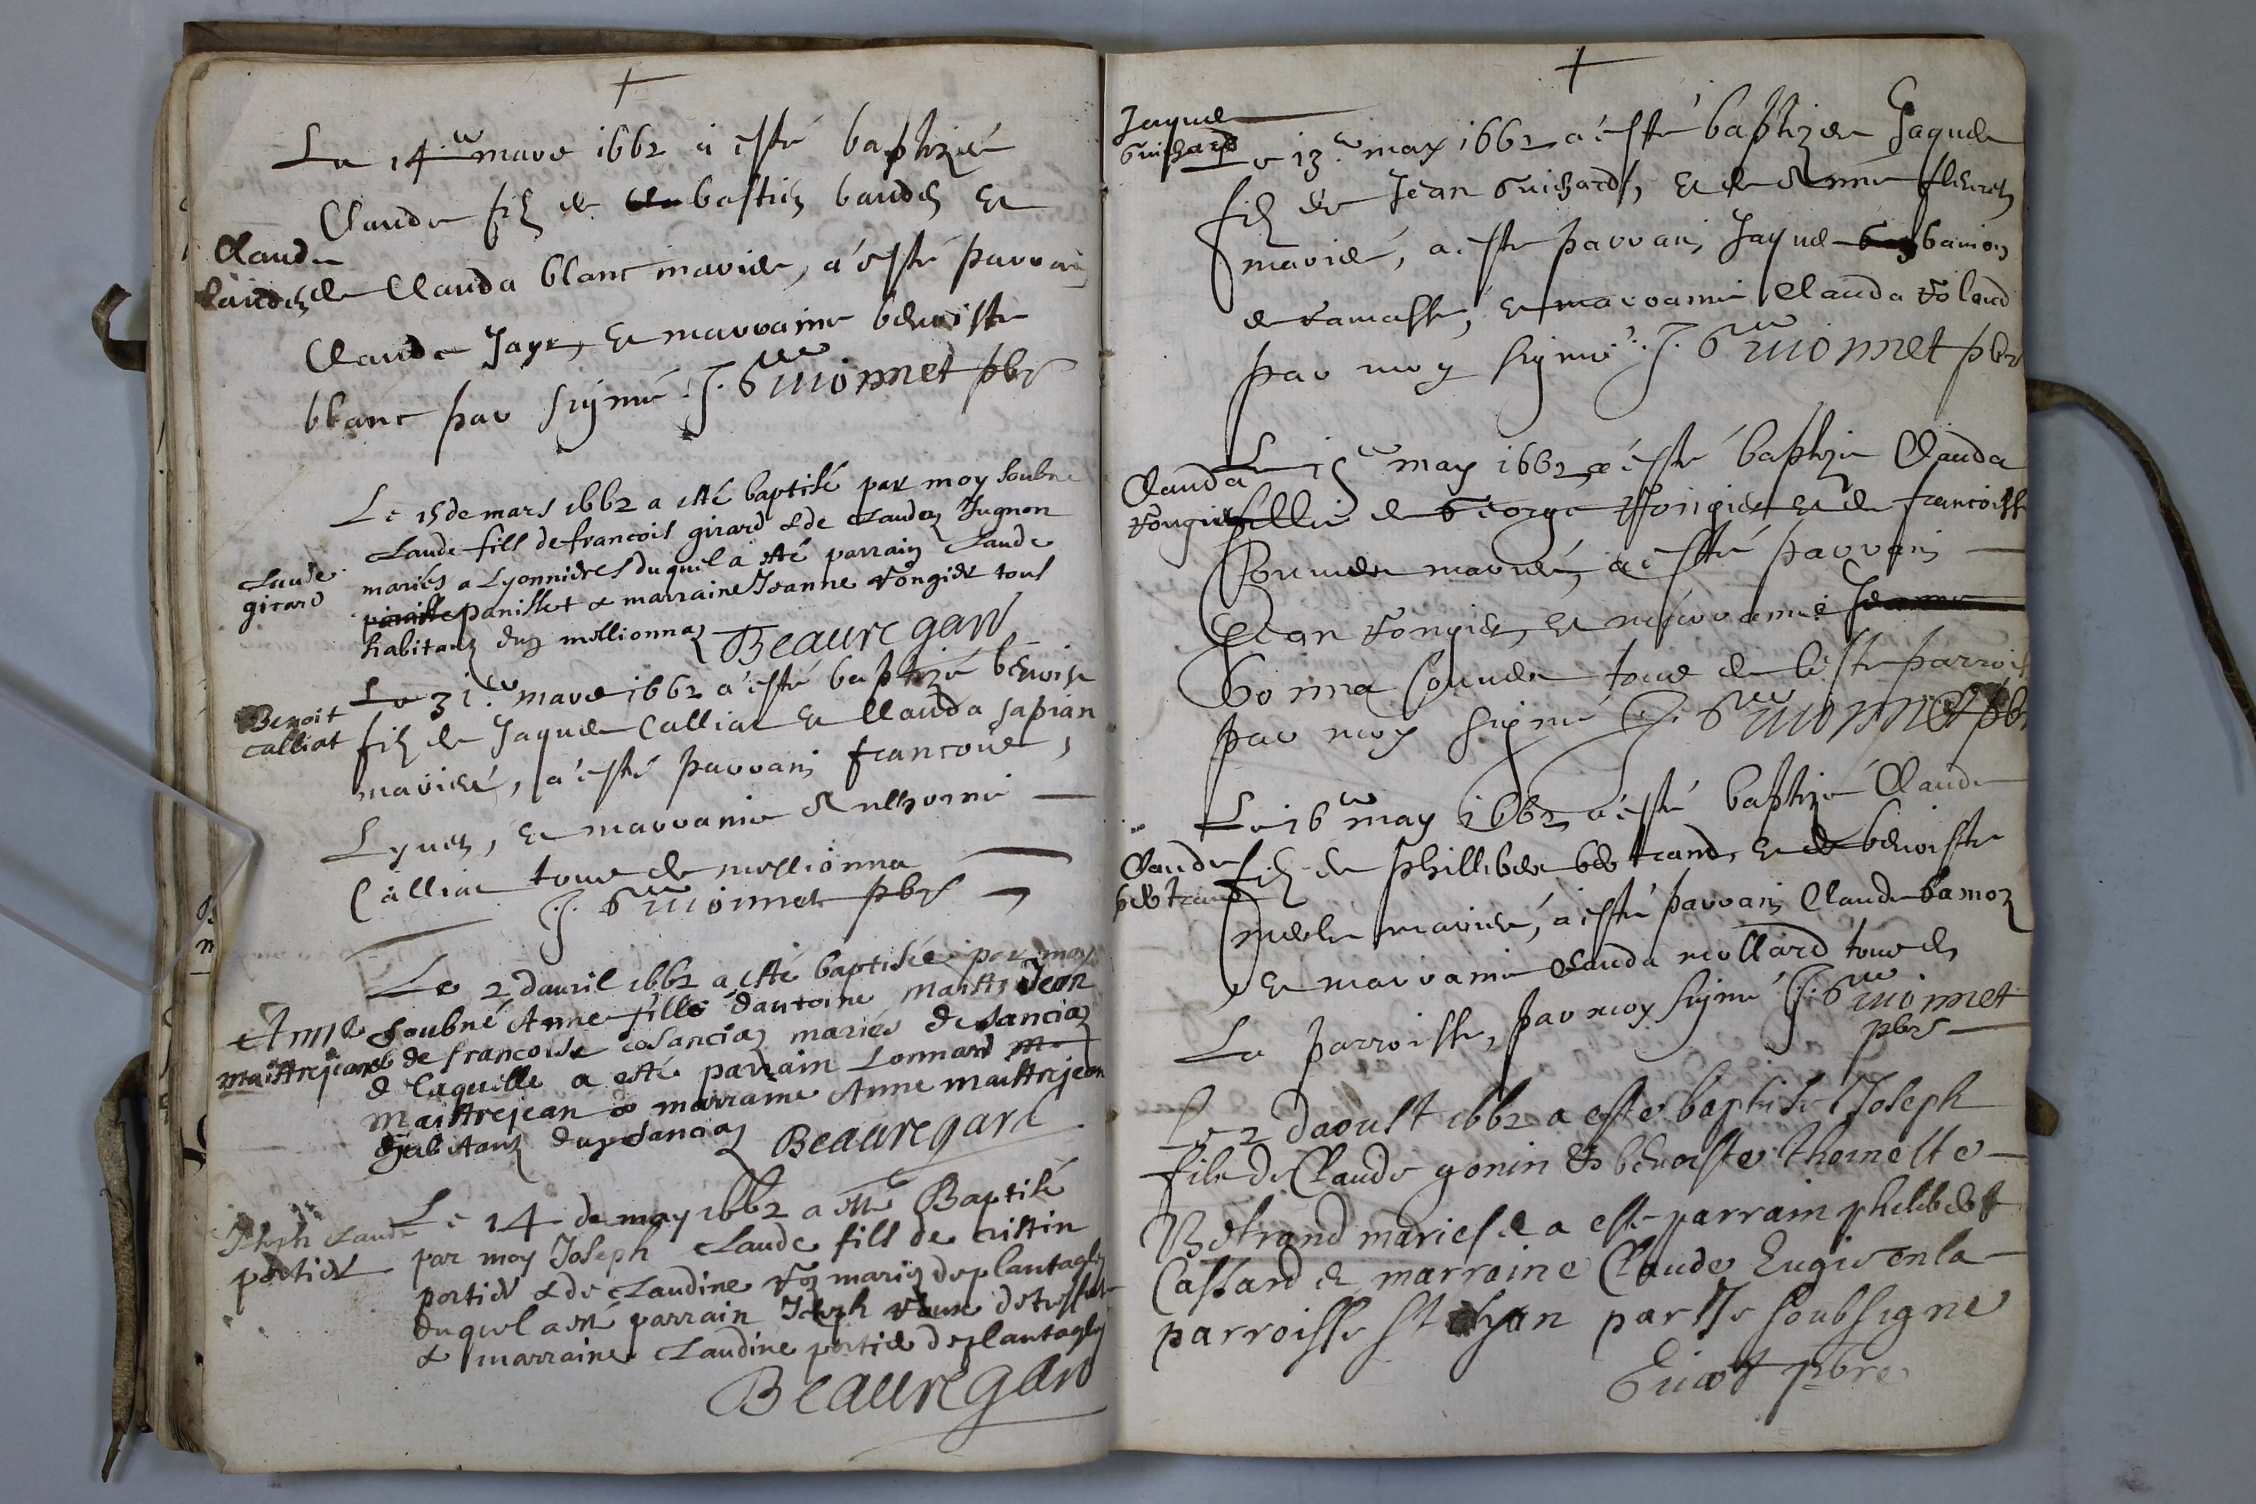 Le 14.e mars 1662 a esté baptizé
Claude filz de bastien baudez et
Claude
baudez
de Clauda blanc mariés, a esté parrain
Claude Jayr, et marraine benoiste
blanc par signé J. Guionnet pbr
Le 15 de mars 1662 a esté baptisé par moy soubne
Claude fils de francois girard & de Claudaz Jugnon
Claude
girard
mariés a Lyonnieres duquel a esté parrain Claude
panisset & marraine Jeanne Rongier tous
habitanz duz mellionnaz Beauregard
Le 31.e mars 1662 a esté baptizé benoist
Benoit
calliat
filz de Jaques Calliat et Clauda sapian
mariés, a esté parrain francois
Lynez, et marraine Anthoinie
Calliat tous de mellionna
J. Guionnet pbr
Le 2 dauril 1662 a esté baptisée par moy
Anne
maistrejean
soubné Anne fille dantoine maistrejean
& de francoise cosanciaz mariés de sanciaz
de laquelle a esté parrain Lonnard
maistrejean & marraine Anne maistrejean
habitanz duz sanciaz Beauregard
Le 14 de may 1662 a esté Baptisé
Joseph Claude
portier
par moy Joseph Claude fils de cristin
portier & de Claudine mariez deplantaglay
duquel a esté parrain Joseph
& marraine Claudine portier deplantaglay
Beauregard
Jaques
Guichard
Le 13.e may 1662 a esté baptizé Jaques
filz de Jean Guichard, et de Anne fleuret
mariés, a esté parrain Jaques banion
de ramasse, et marraine Clauda Roland
par moy signé J. Guionnet pbr
Le 15e may 1662 a esté baptizé Clauda
Clauda
Rongier
fillie de George Rongier et de francoise
mariés, a esté parrain
Jean Rongier, et marraine
bonna tous de ceste parrois
par moy signé J. Guionnet pbr
Le 16e may 1662 a esté baptizé Claude
Claude
bertrand
filz de Phillibert bertrand, et de benoiste
mariés, a esté parrain Claude bamoz
et marraine Clauda mollard tous de
La parroisse, par moy signé J. Guionnet
pbr
Le 2 daoust 1662 a esté baptisé Joseph
fils de Claude gonin & benoiste thomette
Betrand mariés & a esté parrain philibert
Cassard & marraine Claude Eugir en la
parroisse st Jean par Je soubsigné
Guiot pbre